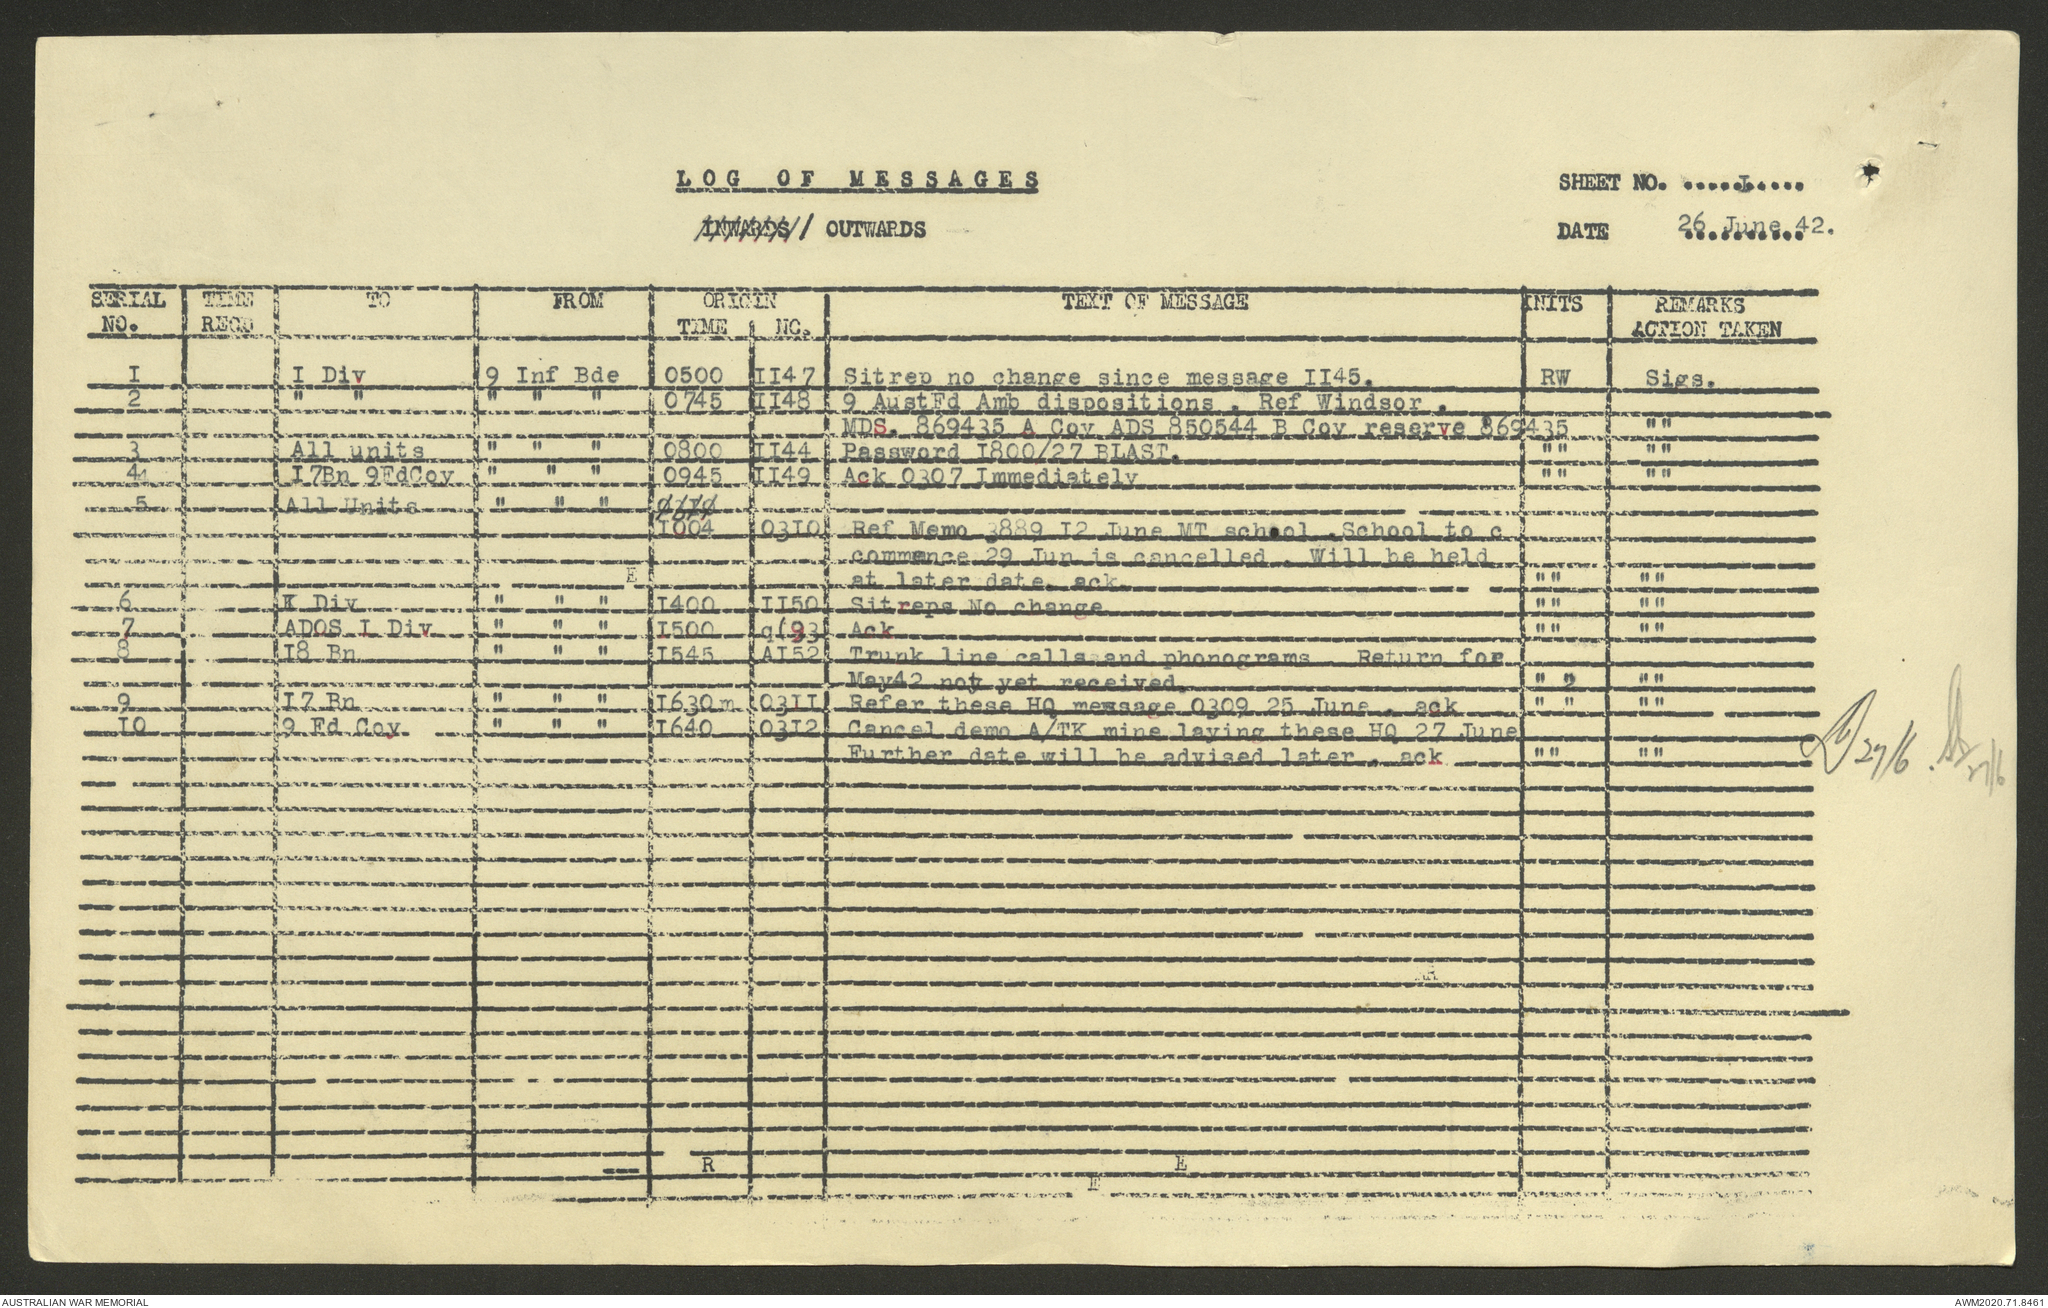 LOG OF MESSAGES
INWARDS / OUTWARDS
SHEET NO. .....I.....
DATE 26 June 42.
SERIAL NO. TIME RECD TO FROM ORIGIN TIME NO. TEXT OF MESSAGE INITS REMARKS ACTION TAKEN
I I Div 9 Inf Bde 0500 II47 Sitrep no change since message II45. RW Sigs.
2 " " " " " 0745 II48 9 AustFd Amb dispositions . Ref Windsor .
MDS. 869435 A Coy ADS 850544 B Coy reserve 869435 ""
3 All units " " " 0800 II44 Password I800/27 BLAST. "" ""
4 I7Bn 9FdCoy " " " 0945 II49 Ack 0307 Immediately "" ""
5 All Units " " "
I004 03I0 Ref Memo 3889 I2 June MT school .School to c
commence 29 Jun is cancelled . Will be held
E at later date. ack "" ""
6 K Div " " " I400 II50 Sitreps No change "" ""
7 ADOS I Div " " " I500 q(93 Ack "" ""
8 I8 Bn " " " I545 AI52 Trunk line calls and phonograms Return for
May42 not yet received. " " ""
9 I7 Bn " " " I630m 03II Refer these HQ message 0309 25 June . ack " " ""
I0 9 Fd Coy " " " I640 03I2 Cancel demo A/TK mine laying these HQ 27 June
Further date will be advised later . ack "" ""
27/6 27/6
R E
E
AUSTRALIAN WAR MEMORIAL AWM2020.71.8461